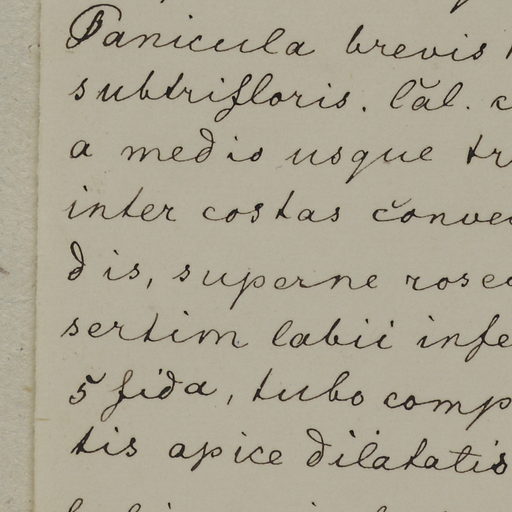 Panicula brevis
subtrifloris. Căl. c
a medio usque tr
inter costas convex
dis, superne rosea
sertim labii infe
5 fida, tubo comp
tis apice dilatatis